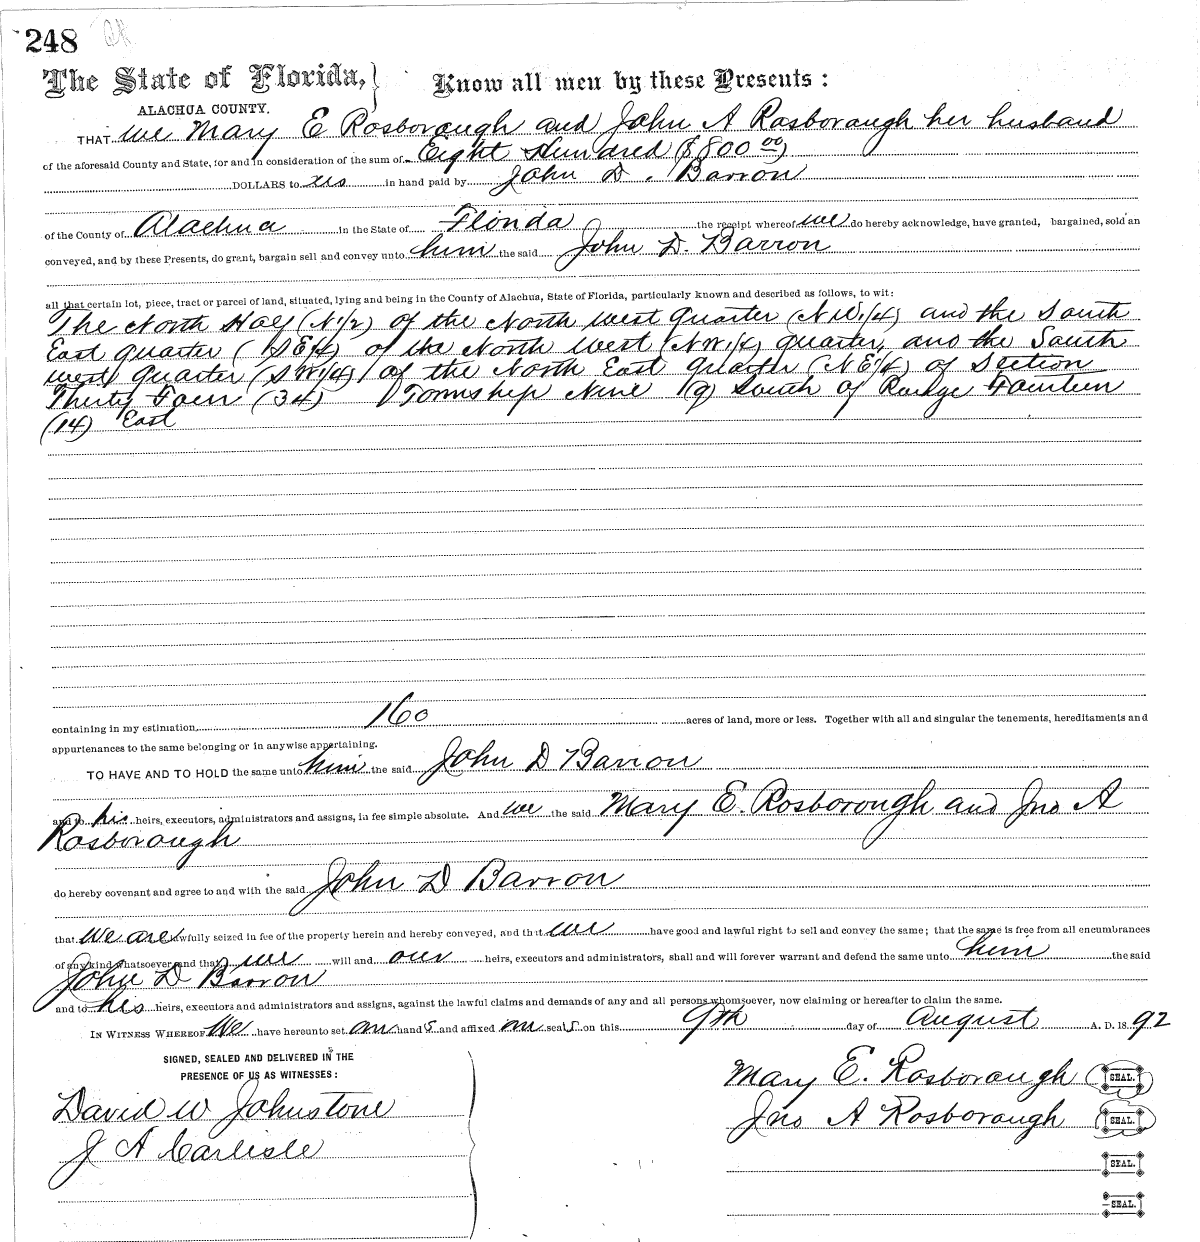 248
The State of Florida, } Know all men by these Presents :
ALACHUA COUNTY.
THAT we Mary E Rosborough and John A Rosborough her husband
of the aforesaid County and State, for and in consideration of the sum of Eight Hundred ($800 00)
DOLLARS to us in hand paid by John D. Barron
of the County of Alachua in the State of Florida the receipt whereof we do hereby acknowledge, have granted, bargained, sold an
conveyed, and by these Presents, do grant, bargain sell and convey unto him the said John D. Barron
all that certain lot, piece, tract or parcel of land, situated, lying and being in the County of Alachua, State of Florida, particularly known and described as follows, to wit:
The North Half (N 1/2) of the North West Quarter (N W 1/4) and the South
East quarter (S E 1/4) of the North West (N W 1/4) quarter, and the South
West quarter (S W 1/4) of the North East quarter (N E 1/4) of Section
Thirty Four (34) Township Nine (9) South of Range Fourteen
(14) East
containing in my estimation 160 acres of land, more or less. Together with all and singular the tenements, hereditaments and
appurtenances to the same belonging or in anywise appertaining.
TO HAVE AND TO HOLD the same unto him the said John D Barron
and to his heirs, executors, administrators and assigns, in fee simple absolute. And we the said Mary E. Rosborough and Jno A
Rosborough
do hereby covenant and agree to and with the said John D Barron
that we are lawfully seized in fee of the property herein and hereby conveyed, and that we have good and lawful right to sell and convey the same; that the same is free from all encumbrances
of any kind whatsoever and that we will and our heirs, executors and administrators, shall and will forever warrant and defend the same unto him the said
John D Barron
and to his heirs, executors and administrators and assigns, against the lawful claims and demands of any and all persons whomsoever, now claiming or hereafter to claim the same.
IN WITNESS WHEREOF We have hereunto set our hands and affixed our seals on this 9th day of August A. D. 1892
SIGNED, SEALED AND DELIVERED IN THE
PRESENCE OF US AS WITNESSES :
David W Johnstone
J A Carlisle
Mary E. Rosborough SEAL.
Jno A Rosborough SEAL.
SEAL.
SEAL.